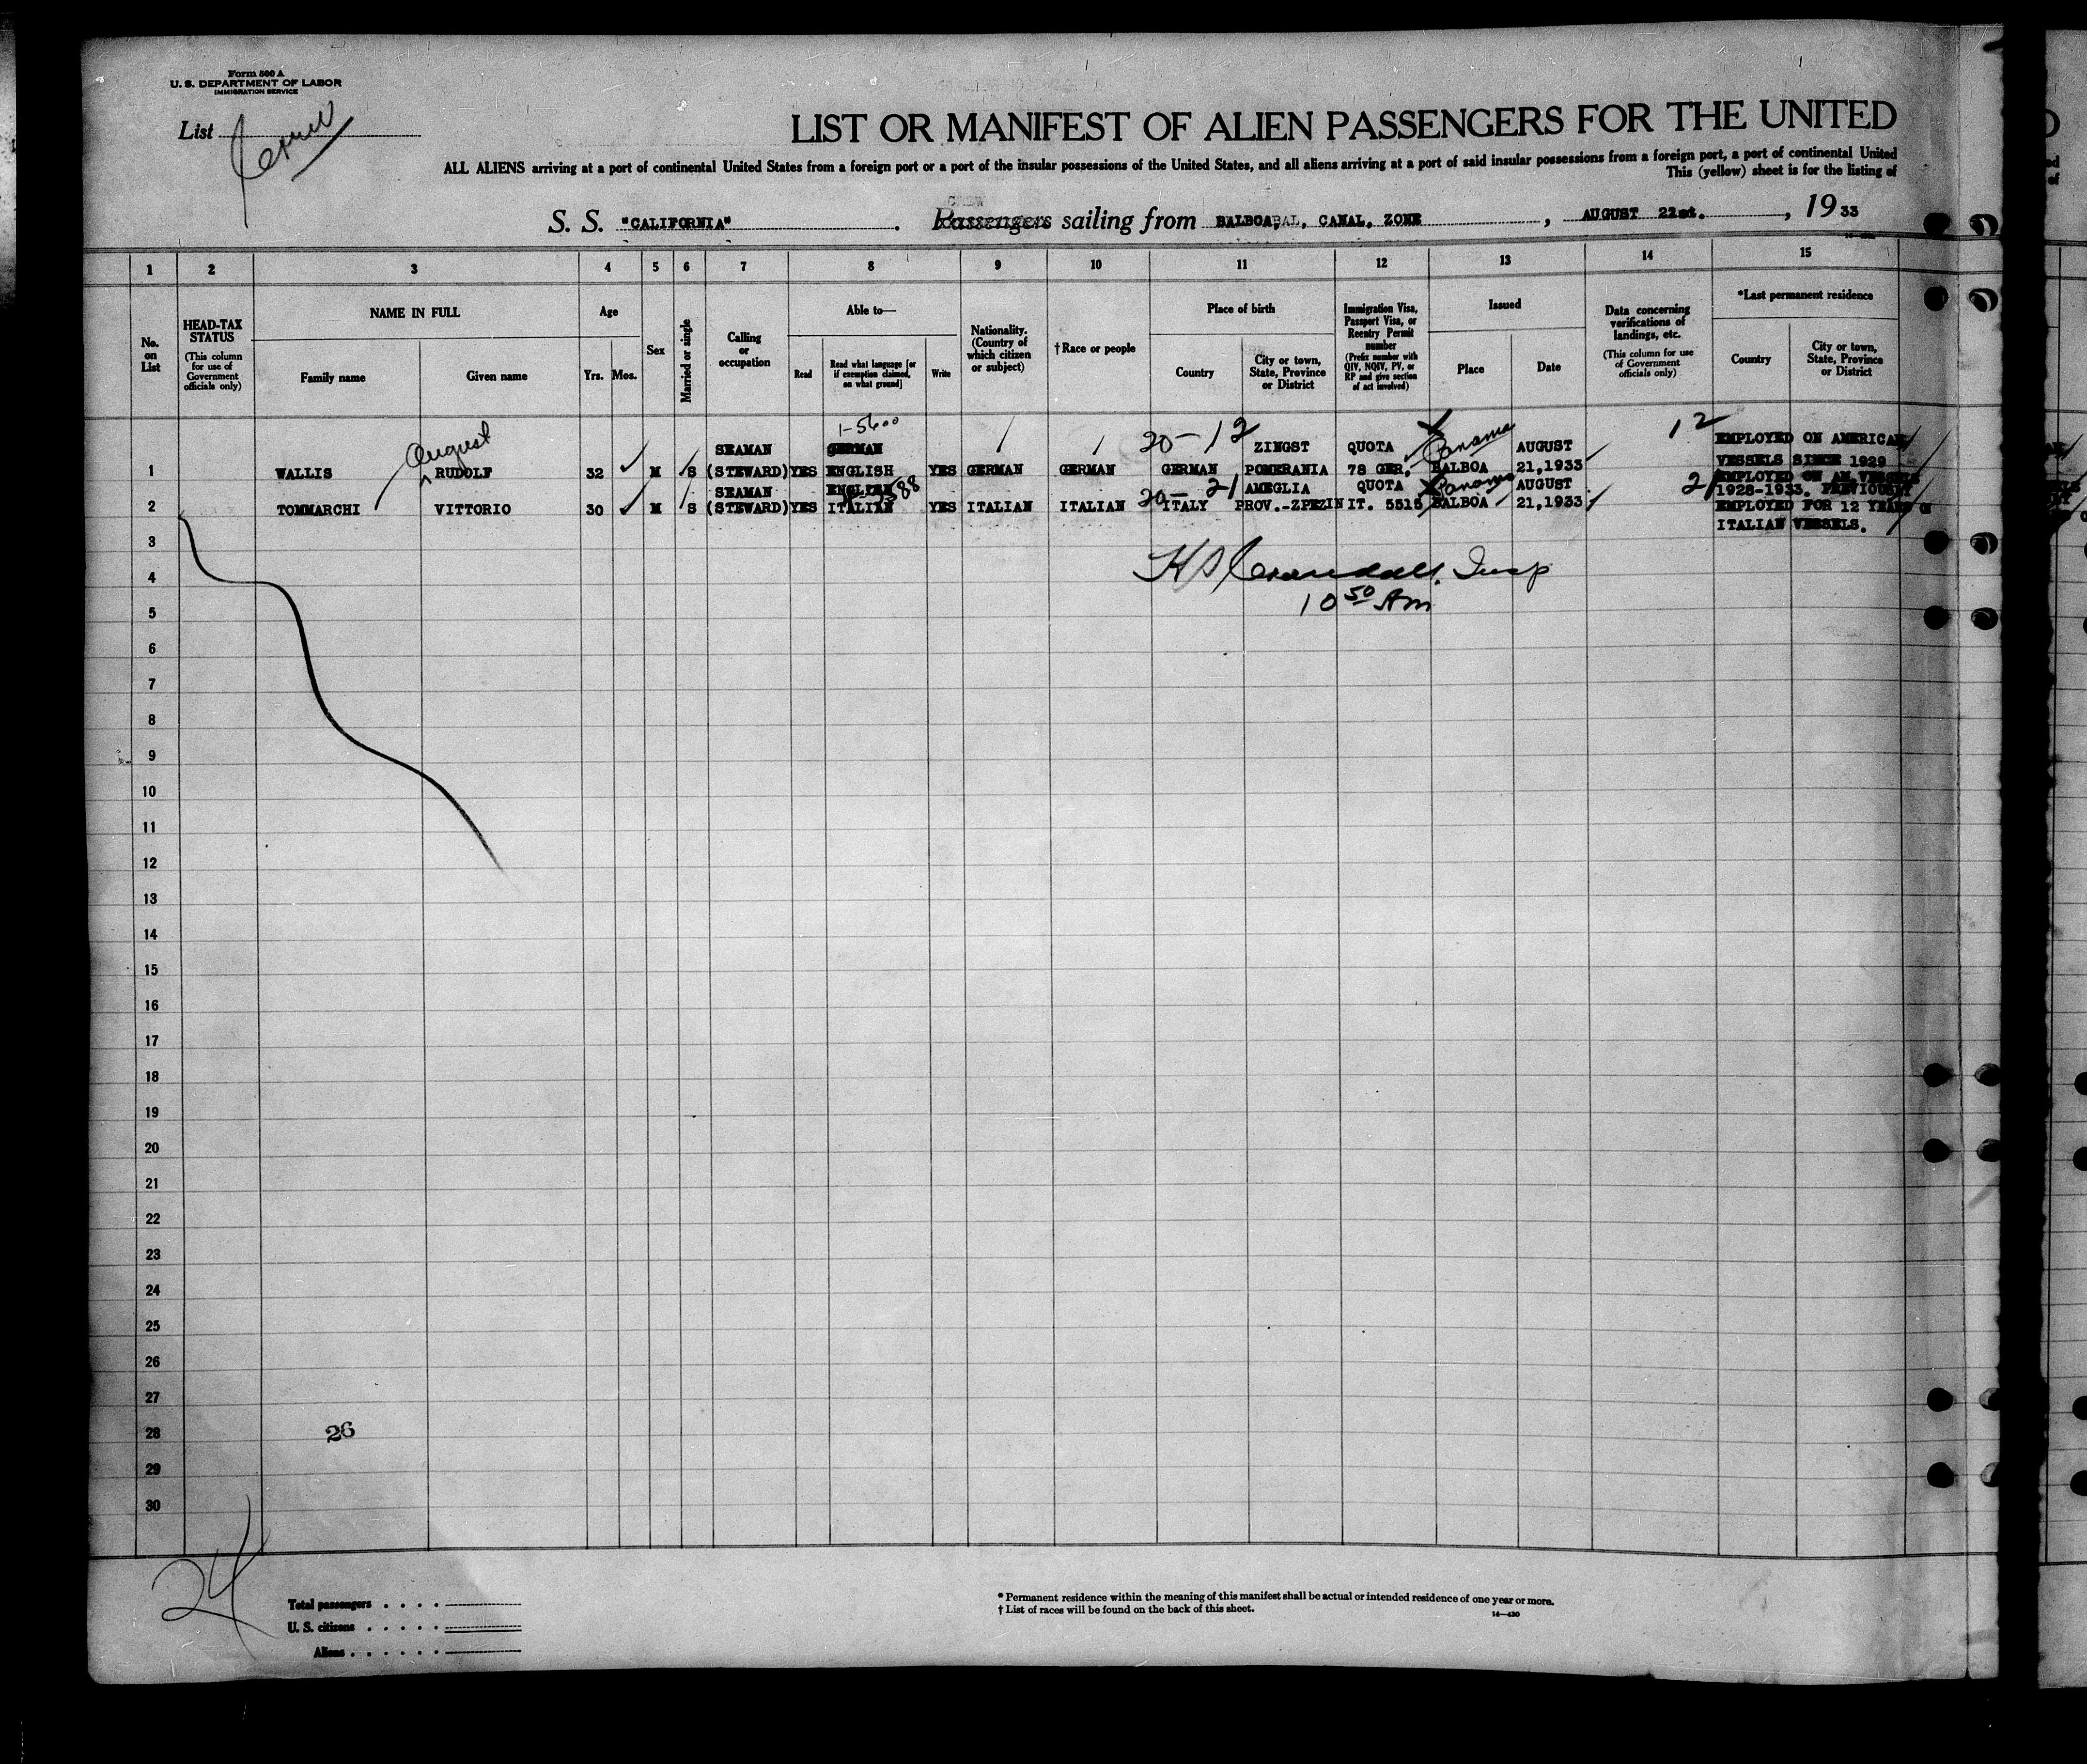 Form 500 A
U. S. DEPARTMENT OF LABOR
IMMIGRATION SERVICE
List
LIST OR MANIFEST OF ALIEN PASSENGERS FOR THE UNITED
ALL ALIENS arriving at a port of continental United States from a foreign port or a port of the insular possessions of the United States, and all aliens arriving at a port of said insular possessions from a foreign port, a port of continental United
This (yellow) sheet is for the listing of
CREW
S. S. "CALIFORNIA". Passengers sailing from BALBOA, CANAL, ZONE, AUGUST 21st., 1933
1 2 3 4 5 6 7 8 9 10 11 12 13 14 15
No. on List
HEAD-TAX STATUS
(This column for use of Government officials only)
NAME IN FULL
Family name
Given name
Age
Yrs. Mos.
Sex
Married or single
Calling or occupation
Able to—
Read
Read what language [or if exemption claimed, on what ground]
Write
Nationality. (Country of which citizen or subject)
†Race or people
Place of birth
Country
City or town, State, Province or District
Immigration Visa, Passport Visa, or Reentry Permit number
(Prefix number with QIV, NQIV, PV, or RP and give section of act involved)
Issued
Place
Date
Data concerning verifications of landings, etc.
(This column for use of Government officials only)
*Last permanent residence
Country
City or town, State, Province or District
August 1-5600 20-12 Panama 12
SEAMAN GERMAN ZINGST QUOTA AUGUST EMPLOYED ON AMERICAN
1 WALLIS RUDOLF 32 M S (STEWARD) YES ENGLISH YES GERMAN GERMAN GERMAN POMERANIA 78 GER. BALBOA 21,1933 VESSELS SINCE 1929
20-21 Panama 21
SEAMAN ENGLISH AMEGLIA QUOTA AUGUST EMPLOYED ON AM. VESSELS
1928-1933. PREVIOUSLY
2 TOMMARCHI VITTORIO 30 M S (STEWARD) YES ITALIAN YES ITALIAN ITALIAN ITALY PROV.-ZPEZIN IT. 5515 BALBOA 21,1933 EMPLOYED FOR 12 YEARS
3 ITALIAN VESSELS.
4 Crandall, Insp
5 10 50 Am
6
7
8
9
10
11
12
13
14
15
16
17
18
19
20
21
22
23
24
25
26
27
28 26
29
30
24
Total passengers . . . .
U. S. citizens . . . . .
Aliens . . . . . .
* Permanent residence within the meaning of this manifest shall be actual or intended residence of one year or more.
† List of races will be found on the back of this sheet.
14—430